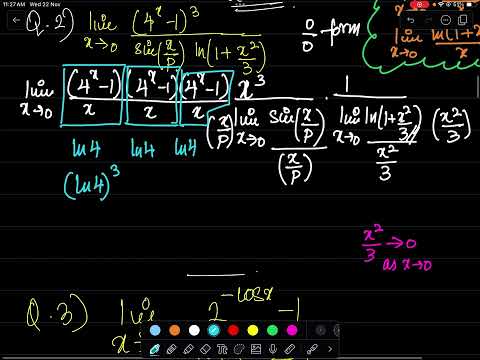 11:27 AM Wed 22 Nov
Q.2) lim x→0 (4^x-1)^3 / sin(x/p) ln(1+x^2/3) 0/0 form
lim x→0 ln(1+x / x
lim x→0 (4^x-1)/x (4^x-1)/x (4^x-1)/x x^3 / (x/p) lim x→0 sin(x/p)/(x/p) 1 / lim x→0 ln(1+x^2/3)/(x^2/3) (x^2/3)
ln4 ln4 ln4
(ln4)^3
x^2/3 →0
as x→0
Q.3) lim x→ 2^-cosx -1